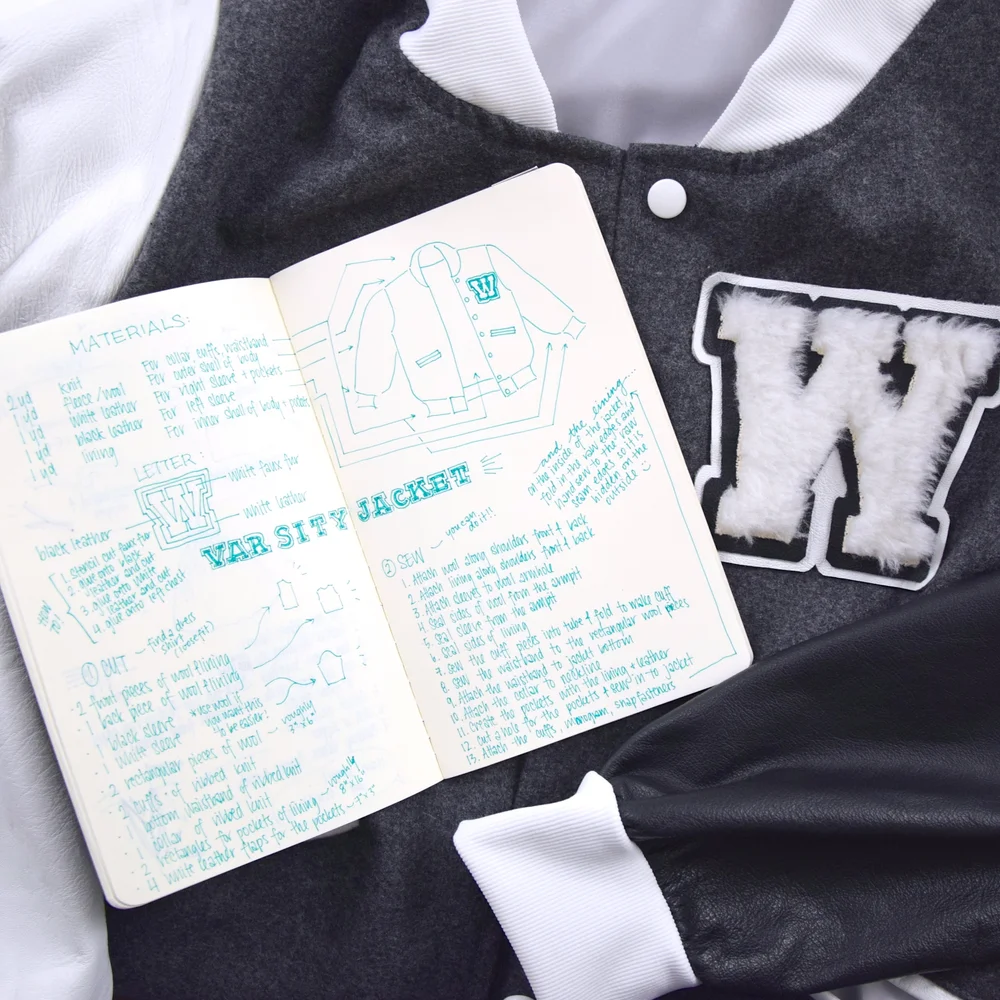 MATERIALS:
2 yd knit For collar, cuffs, waistband
1 yd fleece/wool For outer shell of body
1 yd white leather For right sleeve + pockets
1 yd black leather For left sleeve
1 yd lining For inner shell of body, pockets
LETTER:
white faux fur
W
white leather
black leather
HOW TO:
1. stencil out faux fur
2. glue onto black leather and cut
3. glue onto white leather and cut
4. glue onto left chest
VARSITY JACKET
① CUT ~ find a dress shirt
- 2 front pieces of wool & lining
- 1 back piece of wool & lining
- 1 black sleeve
- 1 white sleeve
* use wool if you want this to be easier
- 2 rectangular pieces of wool ~ roughly 7"x6"
- 2 cuffs of ribbed knit
- 1 bottom waistband of ribbed knit
- 1 collar of ribbed knit
- 2 rectangles for pockets of lining ~ roughly 8"x16"
- 4 white leather flaps for the pockets ~ 7"x3"
W
and the lining...
on the inside of the jacket,
fold in the raw edges and
hand sew to the raw
seam edges so it is
hidden on the
outside :)
② SEW ~ you can do it!!
1. Attach wool along shoulders front & back
2. Attach lining along shoulders front & back
3. Attach sleeves to wool armhole
4. Seal sides of wool from the armpit
5. Seal sleeve from the armpit
6. Seal sides of lining
7. Sew the cuff pieces into tube & fold to make cuff
8. Sew the waistband to the rectangular wool pieces
9. Attach the waistband to jacket bottom
10. Attach the collar to neckline
11. Create the pockets with the lining + leather
12. Cut a hole for the pockets & sew in to jacket
13. Attach the cuffs, monogram, snap fasteners
W